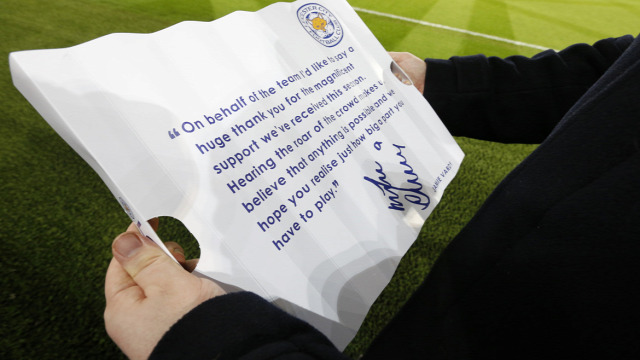 LEICESTER CITY
FOOTBALL CLUB
“On behalf of the team I'd like to say a
huge thank you for the magnificent
support we've received this season.
Hearing the roar of the crowd makes us
believe that anything is possible and we
hope you realise just how big a part you
have to play.”
JAMIE VARDY